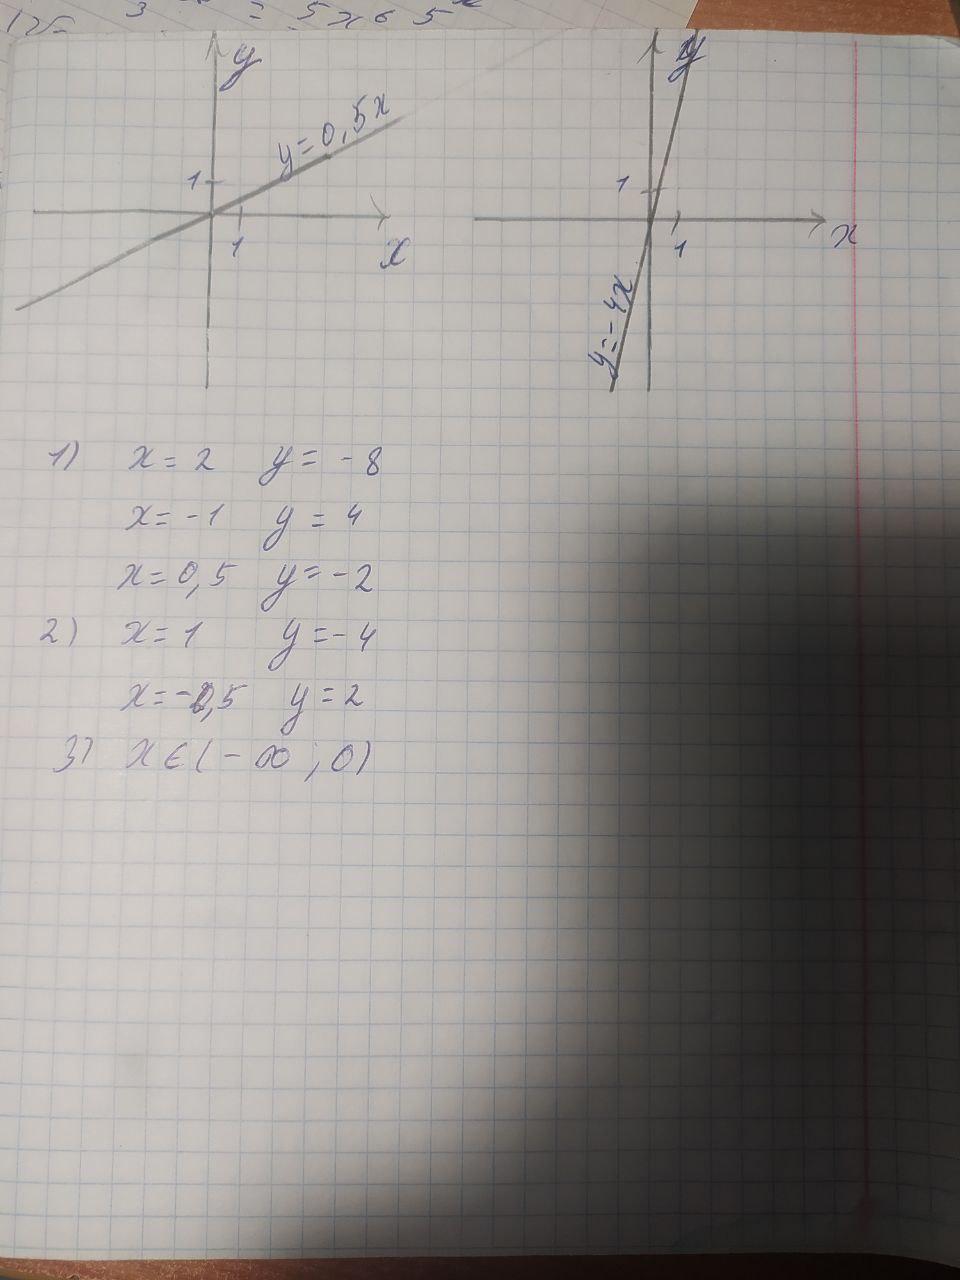 y y
y=0,5x
1 1
1 1
x x
y=-4x
1) x=2 y=-8
x=-1 y=4
x=0,5 y=-2
2) x=1 y=-4
x=-0,5 y=2
3) x∈(-∞;0)